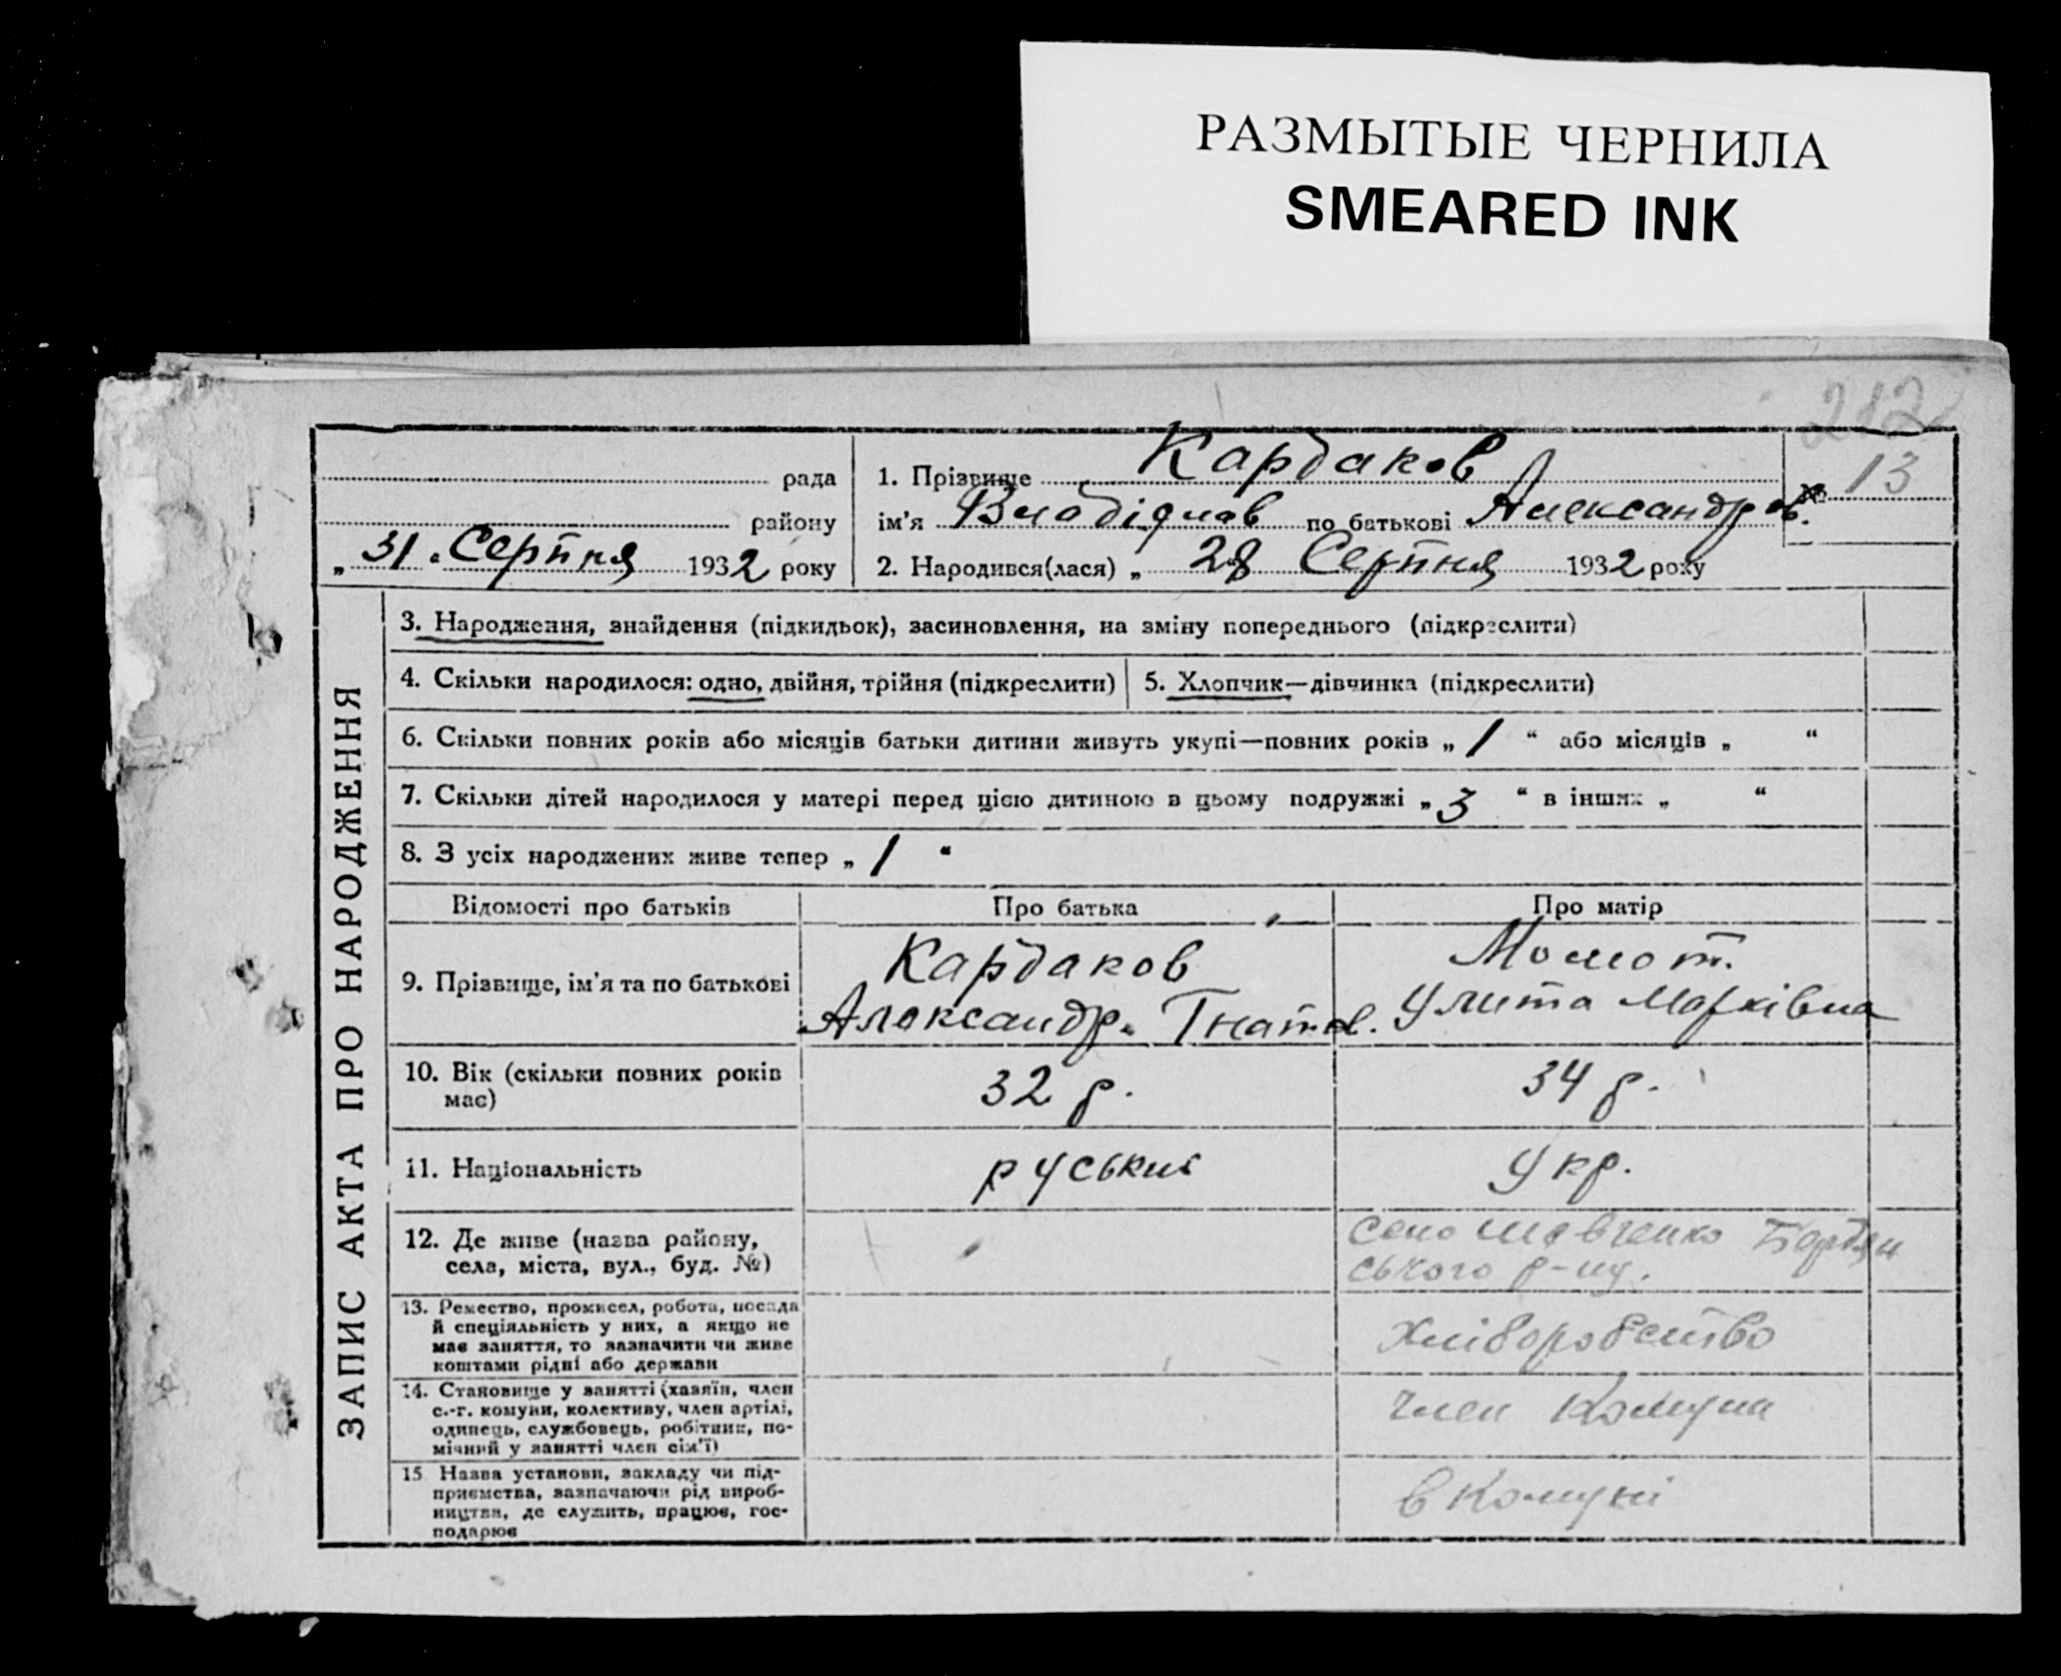 РАЗМЫТЫЕ ЧЕРНИЛА
SMEARED INK
212
13
рада
району
„ 31 “ Серпня 1932 року
1. Прізвище Кардаков
ім’я Владіслав по батькові Александров.
2. Народився(лася) „ 28 Серпня 1932 року
ЗАПИС АКТА ПРО НАРОДЖЕННЯ
3. Народження, знайдення (підкидьок), засиновлення, на зміну попереднього (підкреслити)
4. Скільки народилося: одно, двійня, трійня (підкреслити)
5. Хлопчик—дівчинка (підкреслити)
6. Скільки повних років або місяців батьки дитини живуть укупі—повних років „ 1 “ або місяців „ “
7. Скільки дітей народилося у матері перед цією дитиною в цьому подружжі „ 3 “ в інших „ “
8. З усіх народжених живе тепер „ 1 “
Відомості про батьків
Про батька
Про матір
9. Прізвище, ім’я та по батькові
Кардаков
Александр. Гнатов.
Момот.
Улита Марківна
10. Вік (скільки повних років
має)
32 р.
34 р.
11. Національність
руський
Укр.
12. Де живе (назва району,
села, міста, вул., буд. №)
село Шевченко Бердян
ського р-ну.
13. Ремество, промисел, робота, посада
й спеціяльність у них, а якщо не
має заняття, то зазначити чи живе
коштами рідні або держави
Хліборобство
14. Становище у занятті (хазяїн, член
с.-г. комуни, колективу, член артілі,
одинець, службовець, робітник, по-
мічний у занятті член сім’ї)
член Комуни
15 Назва установи, закладу чи під-
приємства, зазначаючи рід вироб-
ництва, де служить, працює, гос-
подарює
в Комуні